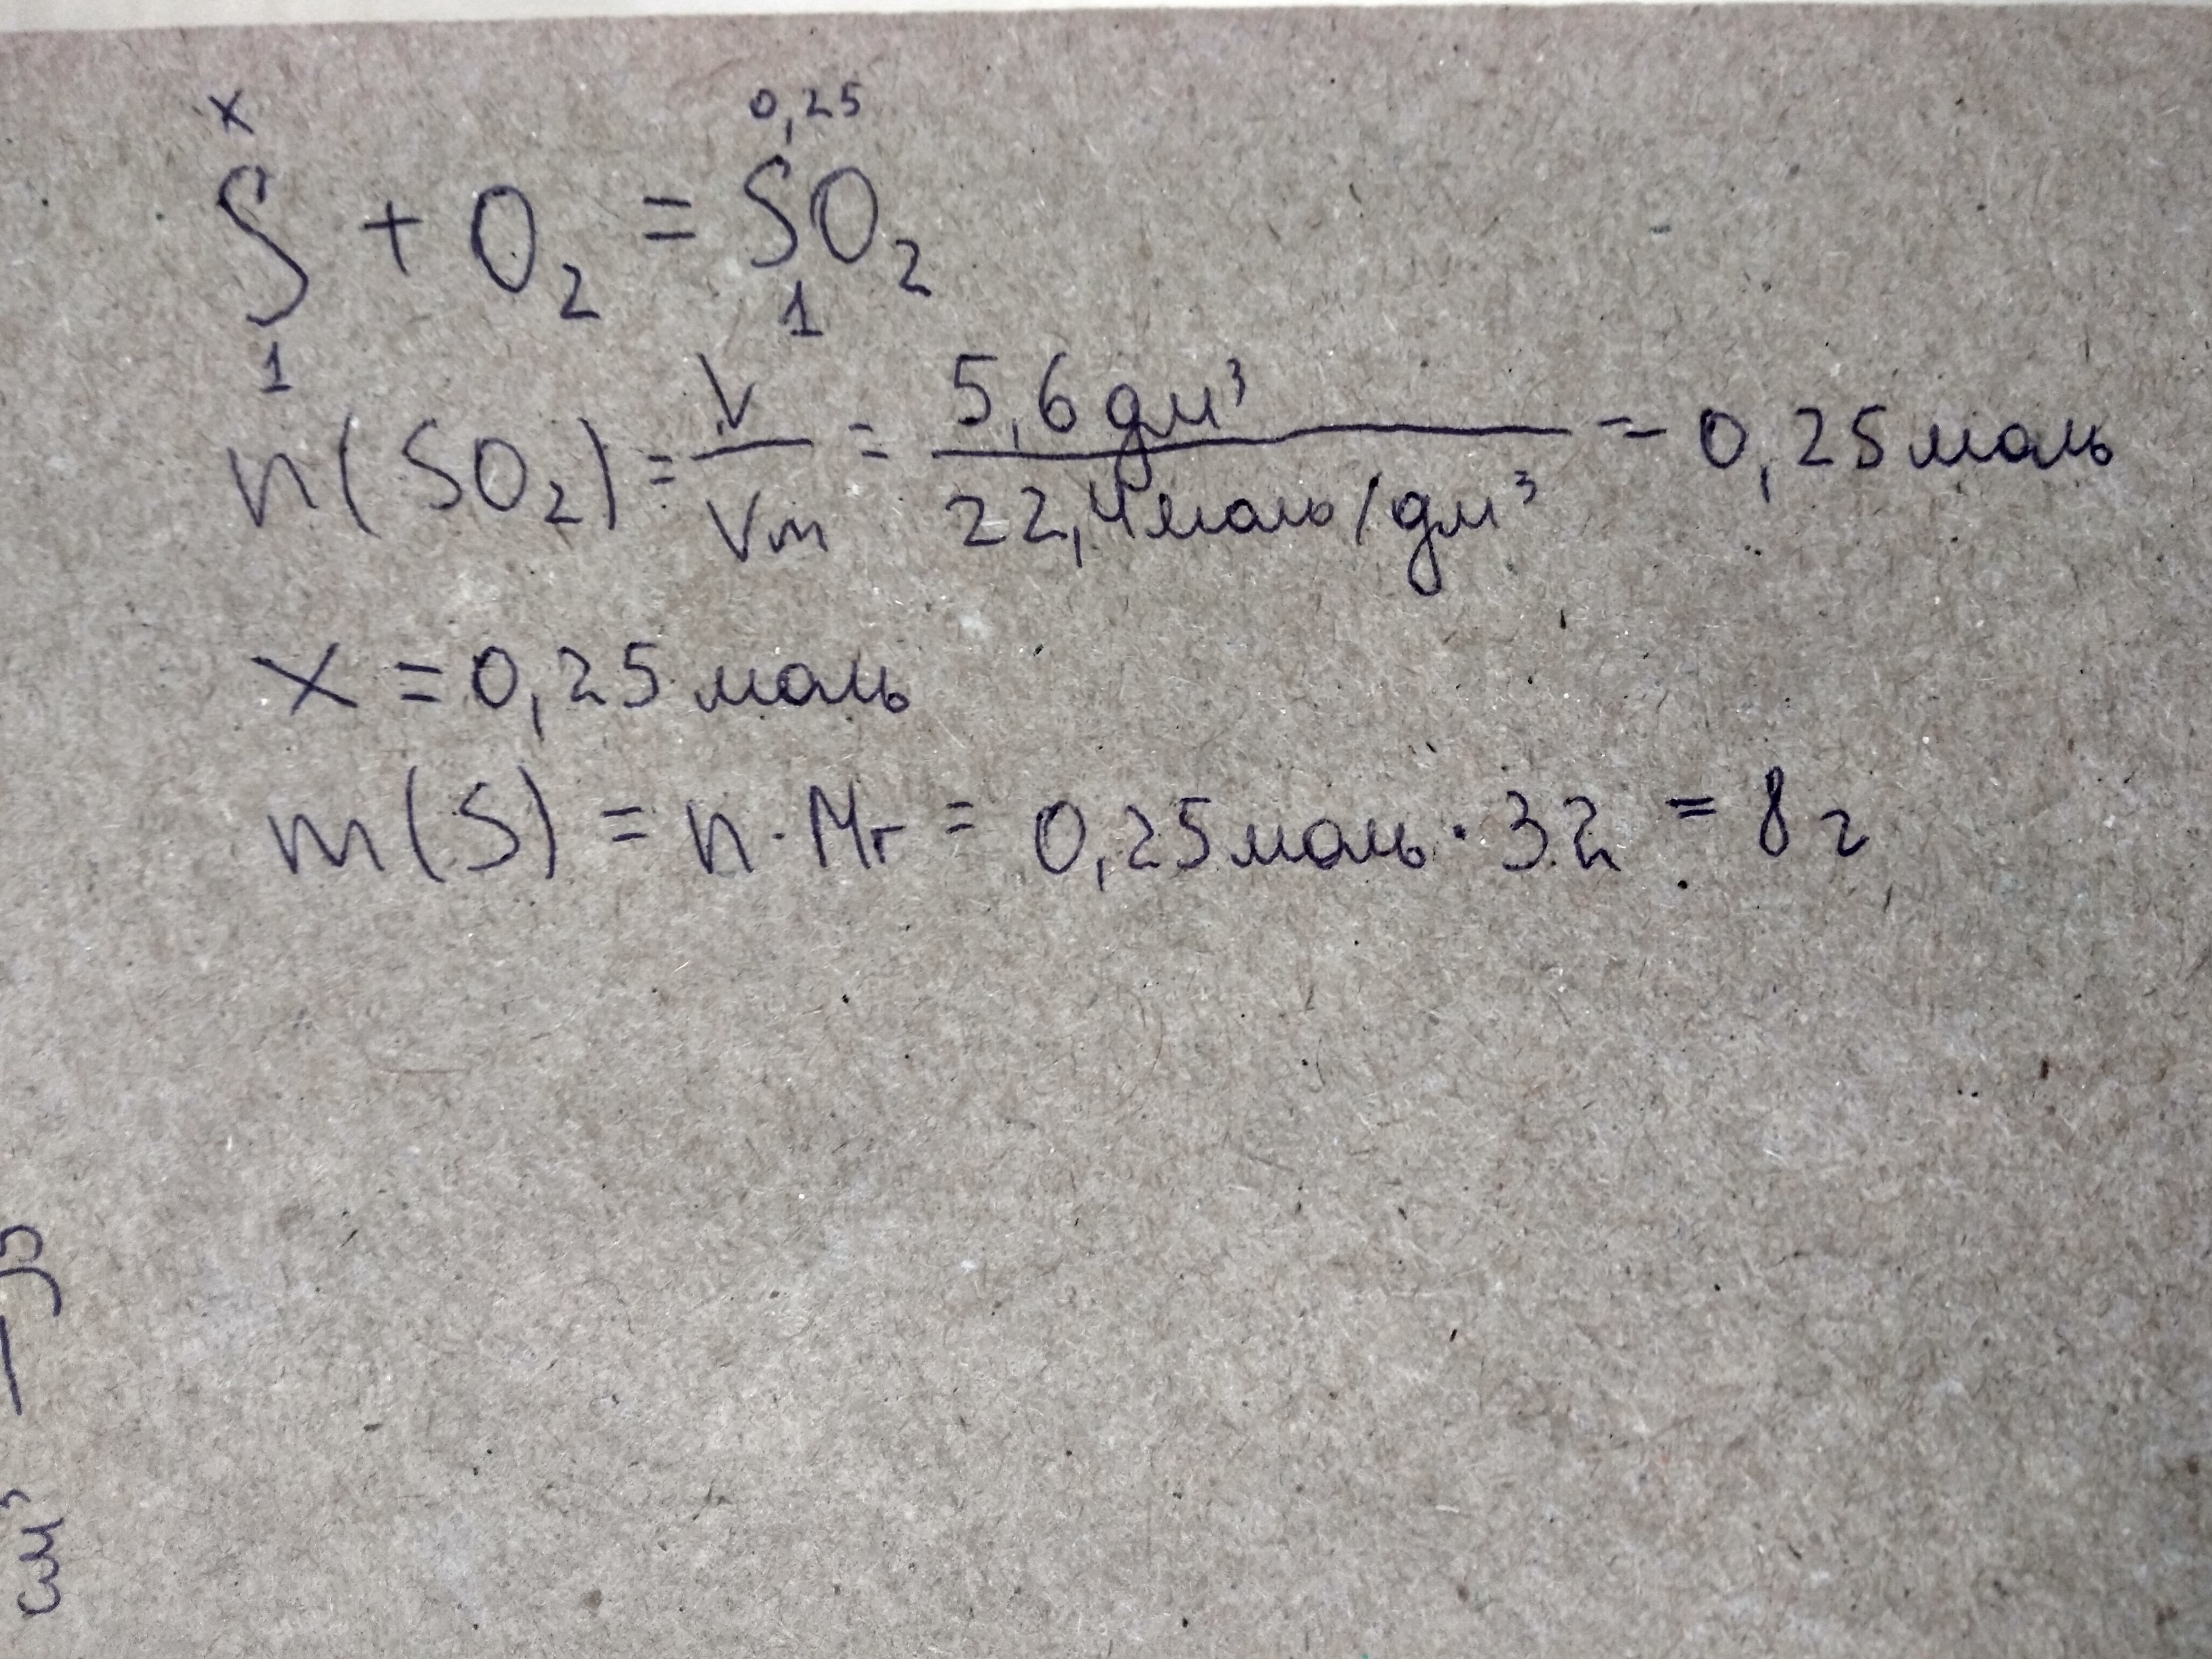 x 0,25
S + O₂ = SO₂
1 1
n(SO₂) = V/Vm = 5,6 дм³ / 22,4 моль/дм³ = 0,25 моль
x = 0,25 моль
m(S) = n · Mr = 0,25 моль · 32 = 8 г
см³